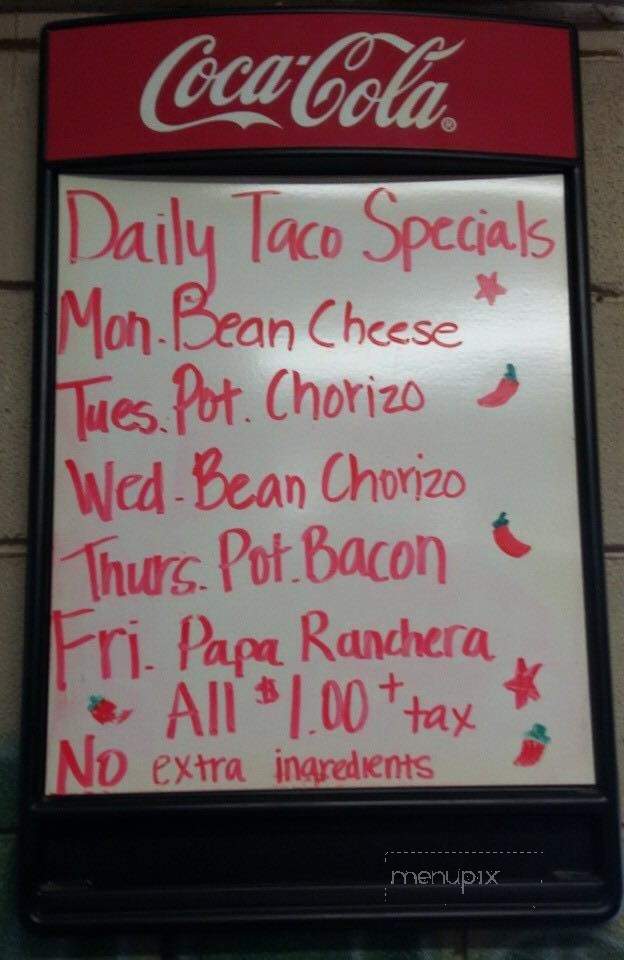 Coca-Cola®
Daily Taco Specials
Mon. Bean Cheese
Tues. Pot. Chorizo
Wed - Bean Chorizo
Thurs. Pot. Bacon
Fri. Papa Ranchera
All $1.00 + tax
No extra ingredients
menupix